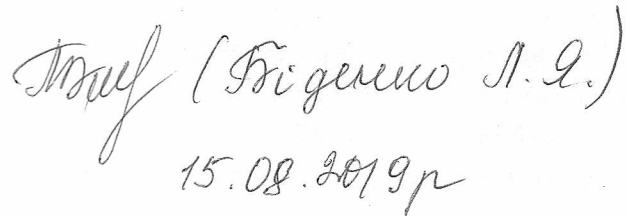 (Біденко Л. Я.)
15.08.2019р